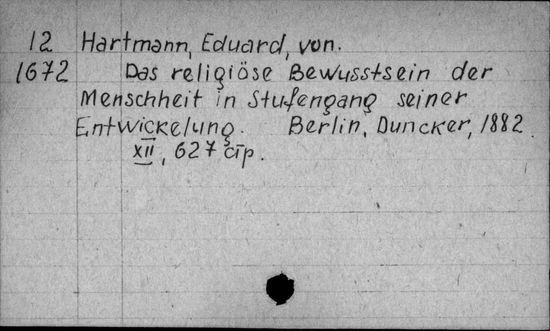 12 Hartmann, Eduard, von.
1672 Das religiöse Bewusstsein der
Menschheit in Stufengang seiner
Entwickelung. Berlin, Duncker, 1882
XII, 627 стр.